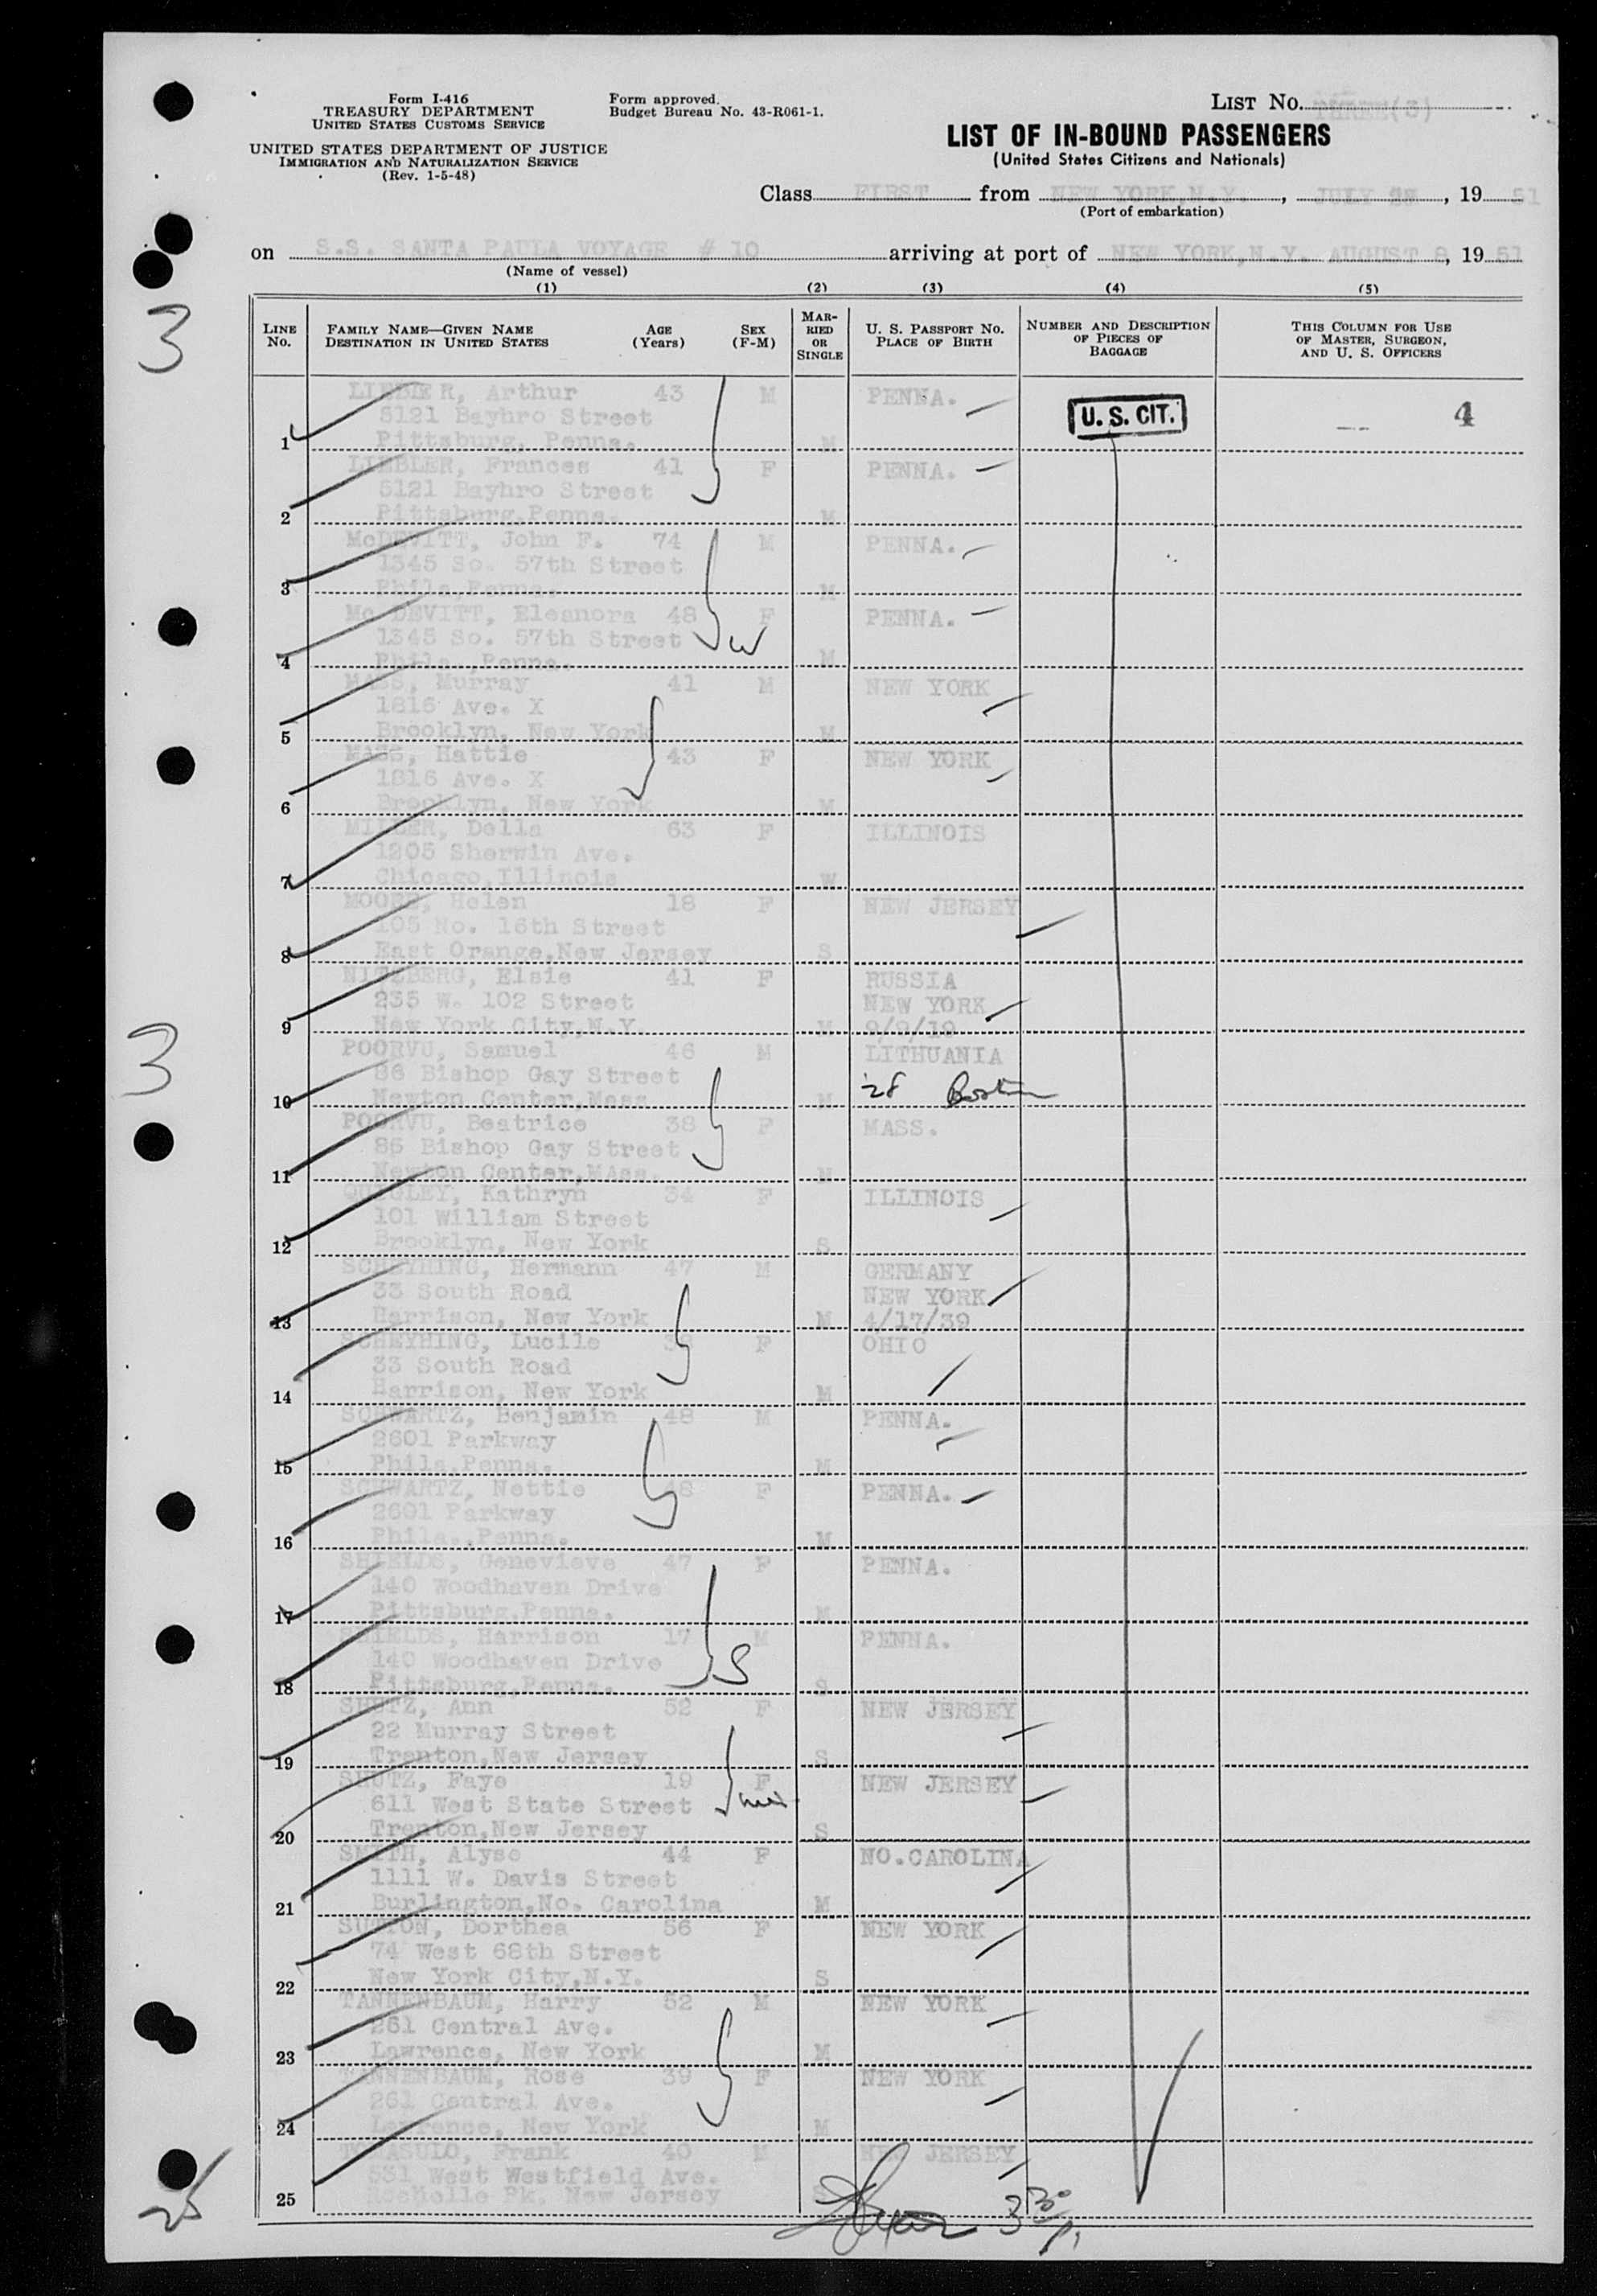 Form I-416
TREASURY DEPARTMENT
UNITED STATES CUSTOMS SERVICE
UNITED STATES DEPARTMENT OF JUSTICE
IMMIGRATION AND NATURALIZATION SERVICE
(Rev. 1-5-48)
Form approved.
Budget Bureau No. 43-R061-1.
LIST NO. THREE(3)
LIST OF IN-BOUND PASSENGERS
(United States Citizens and Nationals)
Class FIRST from NEW YORK,N.Y., JULY , 19 51
(Port of embarkation)
on S.S. SANTA PAULA VOYAGE # 10 arriving at port of NEW YORK,N.Y. AUGUST 8, 19 51
(Name of vessel)
(1) (2) (3) (4) (5)
LINE NO. FAMILY NAME—GIVEN NAME DESTINATION IN UNITED STATES AGE (Years) SEX (F-M) MARRIED OR SINGLE U. S. PASSPORT NO. PLACE OF BIRTH NUMBER AND DESCRIPTION OF PIECES OF BAGGAGE THIS COLUMN FOR USE OF MASTER, SURGEON, AND U. S. OFFICERS
3
LIEBLER, Arthur 43 M PENNA.
5121 Bayhro Street U. S. CIT. 4
1 Pittsburg, Penna. M
LIEBLER, Frances 41 F PENNA.
5121 Bayhro Street
2 Pittsburg,Penna. M
McDEVITT, John F. 74 M PENNA.
1345 So. 57th Street
3 Phila,Penna. M
Mc DEVITT, Eleanora 48 F PENNA.
1345 So. 57th Street W
4 Phila.,Penna. M
MASS, Murray 41 M NEW YORK
1816 Ave. X
5 Brooklyn, New York M
MASS, Hattie 43 F NEW YORK
1816 Ave. X
6 Brooklyn, New York M
MILLER, Della 63 F ILLINOIS
1205 Sherwin Ave.
7 Chicago,Illinois W
MOORE, Helen 18 F NEW JERSEY
105 No. 16th Street
8 East Orange,New Jersey S
NITZBERG, Elsie 41 F RUSSIA
235 W. 102 Street NEW YORK
9 New York City,N.Y. M
3
POORVU, Samuel 46 M LITHUANIA
86 Bishop Gay Street
10 Newton Center,Mass M '28 Boston
POORVU, Beatrice 38 F MASS.
86 Bishop Gay Street
11 Newton Center,MAss. M
QUIGLEY, Kathryn 34 F ILLINOIS
101 William Street
12 Brooklyn, New York S
SCHEYHING, Hermann 47 M GERMANY
33 South Road NEW YORK
13 Harrison, New York M 4/17/39
SCHEYHING, Lucile F OHIO
33 South Road
14 Harrison, New York M
SCHWARTZ, Benjamin 48 M PENNA.
2601 Parkway
15 Phila.Penna. M
SCHWARTZ, Nettie 48 F PENNA.
2601 Parkway
16 Phila.,Penna. M
SHIELDS, Genevieve 47 F PENNA.
140 Woodhaven Drive
17 Pittsburg,Penna. M
SHIELDS, Harrison 17 M PENNA.
140 Woodhaven Drive S
18 Pittsburg,Penna. S
SHUTZ, Ann 52 F NEW JERSEY
22 Murray Street
19 Trenton,New Jersey S
SHUTZ, Faye 19 F NEW JERSEY
611 West State Street
20 Trenton,New Jersey S
SMITH, Alyse 44 F NO.CAROLINA
1111 W. Davis Street
21 Burlington,No. Carolina M
SUTTON, Dorthea 56 F NEW YORK
74 West 68th Street
22 New York City,N.Y. S
TANNENBAUM, Harry 52 M NEW YORK
261 Central Ave.
23 Lawrence, New York M
TANNENBAUM, Rose 39 F NEW YORK
261 Central Ave.
24 Lawrence, New York M
TOMASULO, Frank 40 M NEW JERSEY
531 West Westfield Ave.
25 Rochelle Pk. New Jersey
25